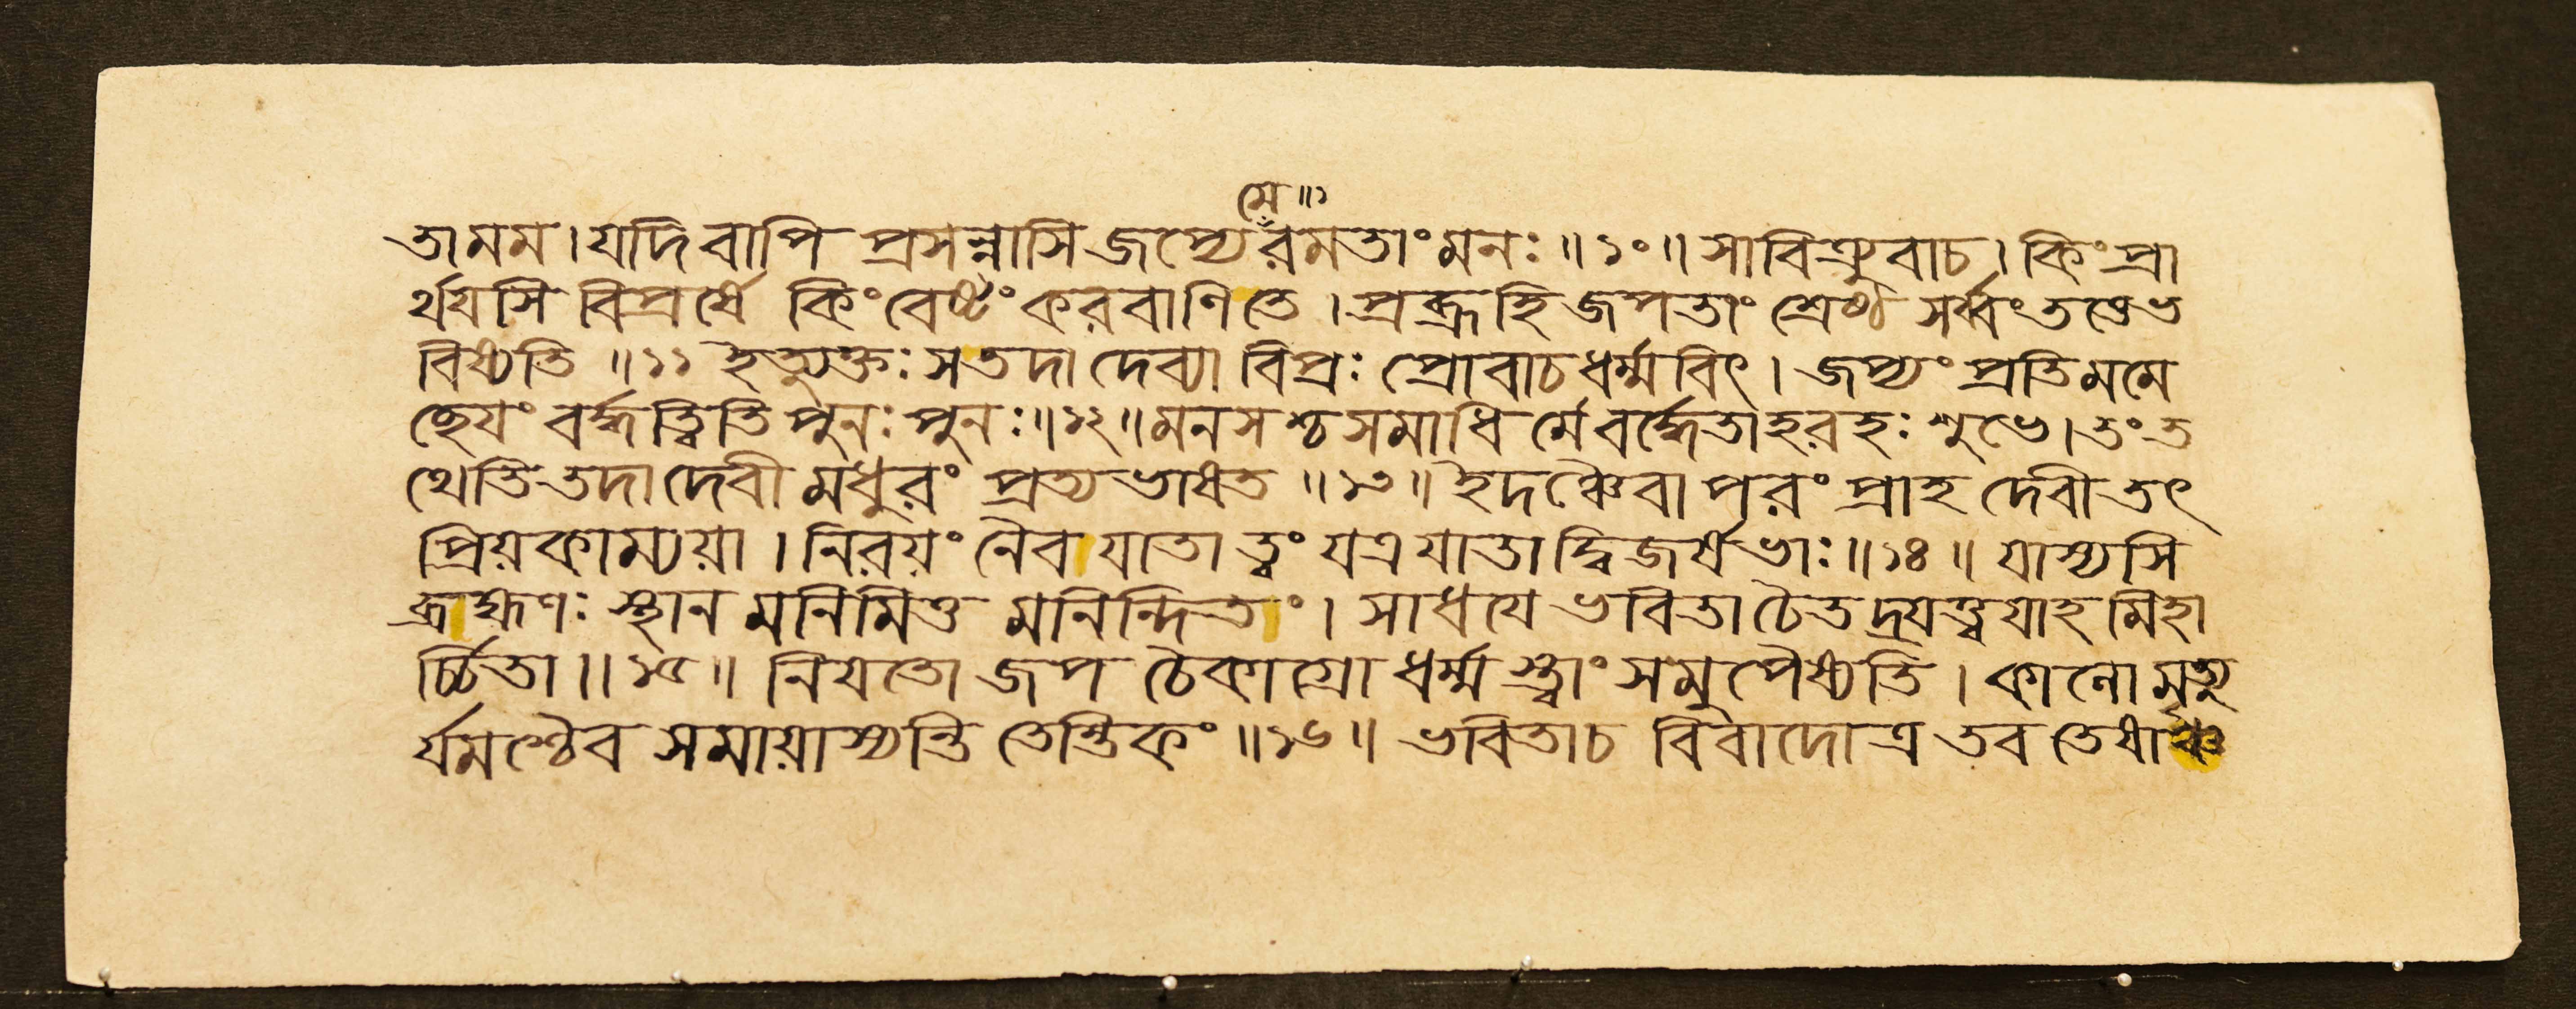 মে॥১
তা মম। যদি বাপি প্রসন্নাসি জপ্যে রমতাং মনঃ॥১০॥ সাবিত্র্যুবাচ। কিং প্রা
র্থযসি বিপ্রর্ষে কিং বেষ্টং করবাণি তে। প্রব্রূহি জপতাং শ্রেষ্ঠ সর্ব্বং তত্তে ভ
বিষ্যতি॥১১ ইত্যুক্তঃ স তদা দেব্যা বিপ্রঃ প্রোবাচ ধর্ম্মবিৎ। জপ্যং প্রতি মমে
চ্ছেযং বর্দ্ধত্ত্বিতি পুনঃ পুনঃ॥১২॥ মনসশ্চ সমাধির্মে বর্দ্ধেতাহরহঃ শুভে। তং ত
থেতি তদা দেবী মধুরং প্রত্যভাষত॥১৩॥ ইদঞ্চৈবাপরং প্রাহ দেবী তৎ
প্রিয়কাম্যয়া। নিরয়ং নৈব যাতা ত্বং যত্র যাতা দ্বিজর্ষভাঃ॥১৪॥ যাস্যসি
ব্রহ্মণঃ স্থানমনিমিত্তমনিন্দিতং। সাধযে ভবিতা চৈতদ্রযত্ত্বযাহমিহা
র্চ্চিতা॥১৫॥ নিযতো জপ চৈকাগ্রো ধর্ম্মস্ত্বাং সমুপৈষ্যতি। কালো মৃত্যু
র্যমশ্চৈব সমায়াস্যন্তি তেন্তিকং॥১৬॥ ভবিতা চ বিবাদোত্র তব তেষাঞ্চ